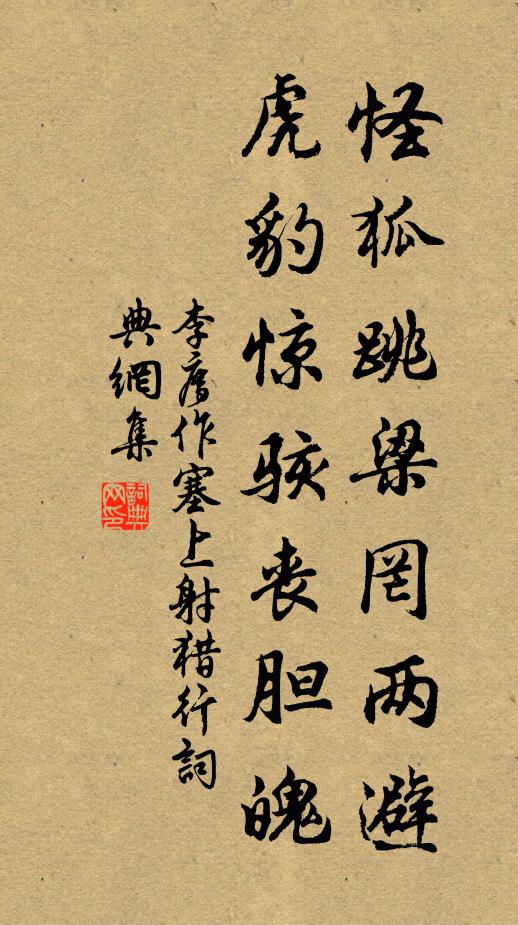 怪狐跳梁罔两避
虎豹惊骇丧胆魄
李廌作塞上射猎行詞
典網集
詞典网印